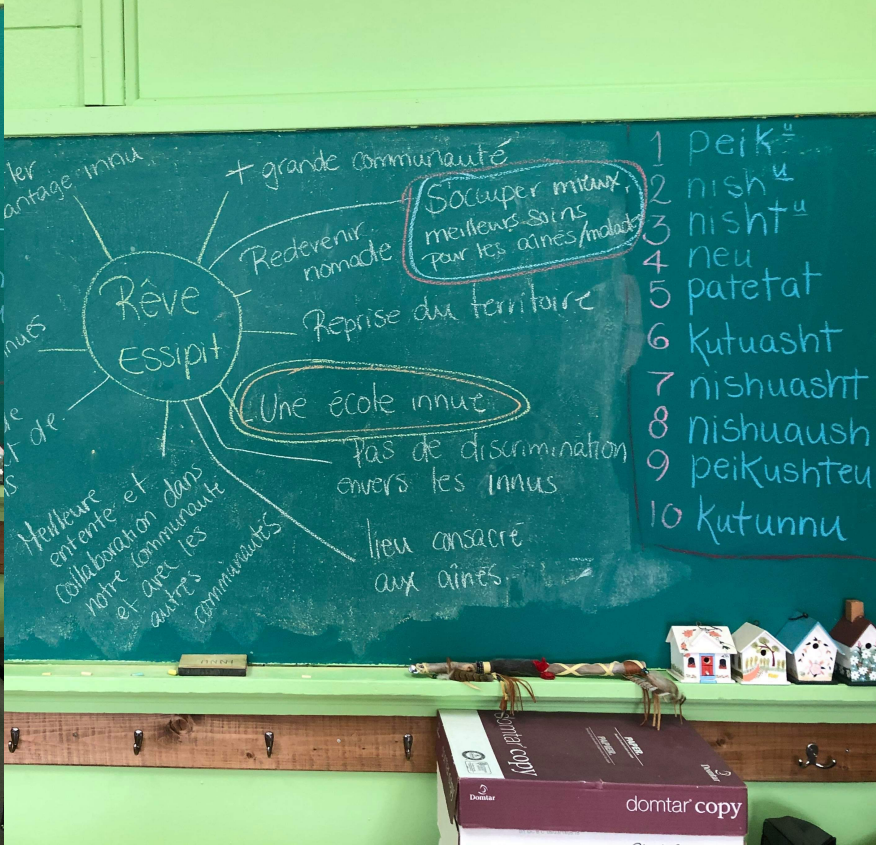 antage innu
+ grande communauté
S'occuper mieux,
meilleurs soins
pour les aînés/malad
Redevenir
nomade
Rêve
Essipit
Reprise du territoire
Une école innue
Pas de discrimination
envers les innus
lieu consacré
aux aînés
Meilleure
entente et
collaboration dans
notre communauté
et avec les
autres
communautés
t de
1 peikᵘ
2 nishᵘ
3 nishtᵘ
4 neu
5 patetat
6 kutuasht
7 nishuasht
8 nishuaush
9 peikushteu
10 kutunnu
domtar copy
PAPER
PAPIER
Domtar
Domtar
domtar copy